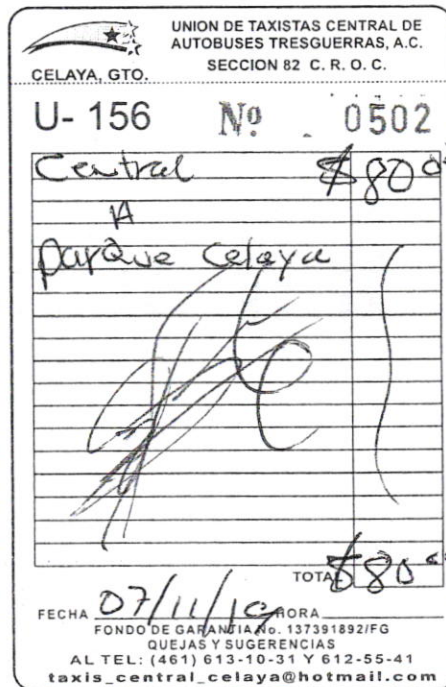 UNION DE TAXISTAS CENTRAL DE
AUTOBUSES TRESGUERRAS, A.C.
SECCION 82 C. R. O. C.
CELAYA, GTO.
U- 156 Nº 0502
Central $80
A
parque Celaya
TOTAL $80
FECHA 07/11/19 HORA
FONDO DE GARANTIA No. 137391892/FG
QUEJAS Y SUGERENCIAS
AL TEL: (461) 613-10-31 Y 612-55-41
taxis_central_celaya@hotmail.com